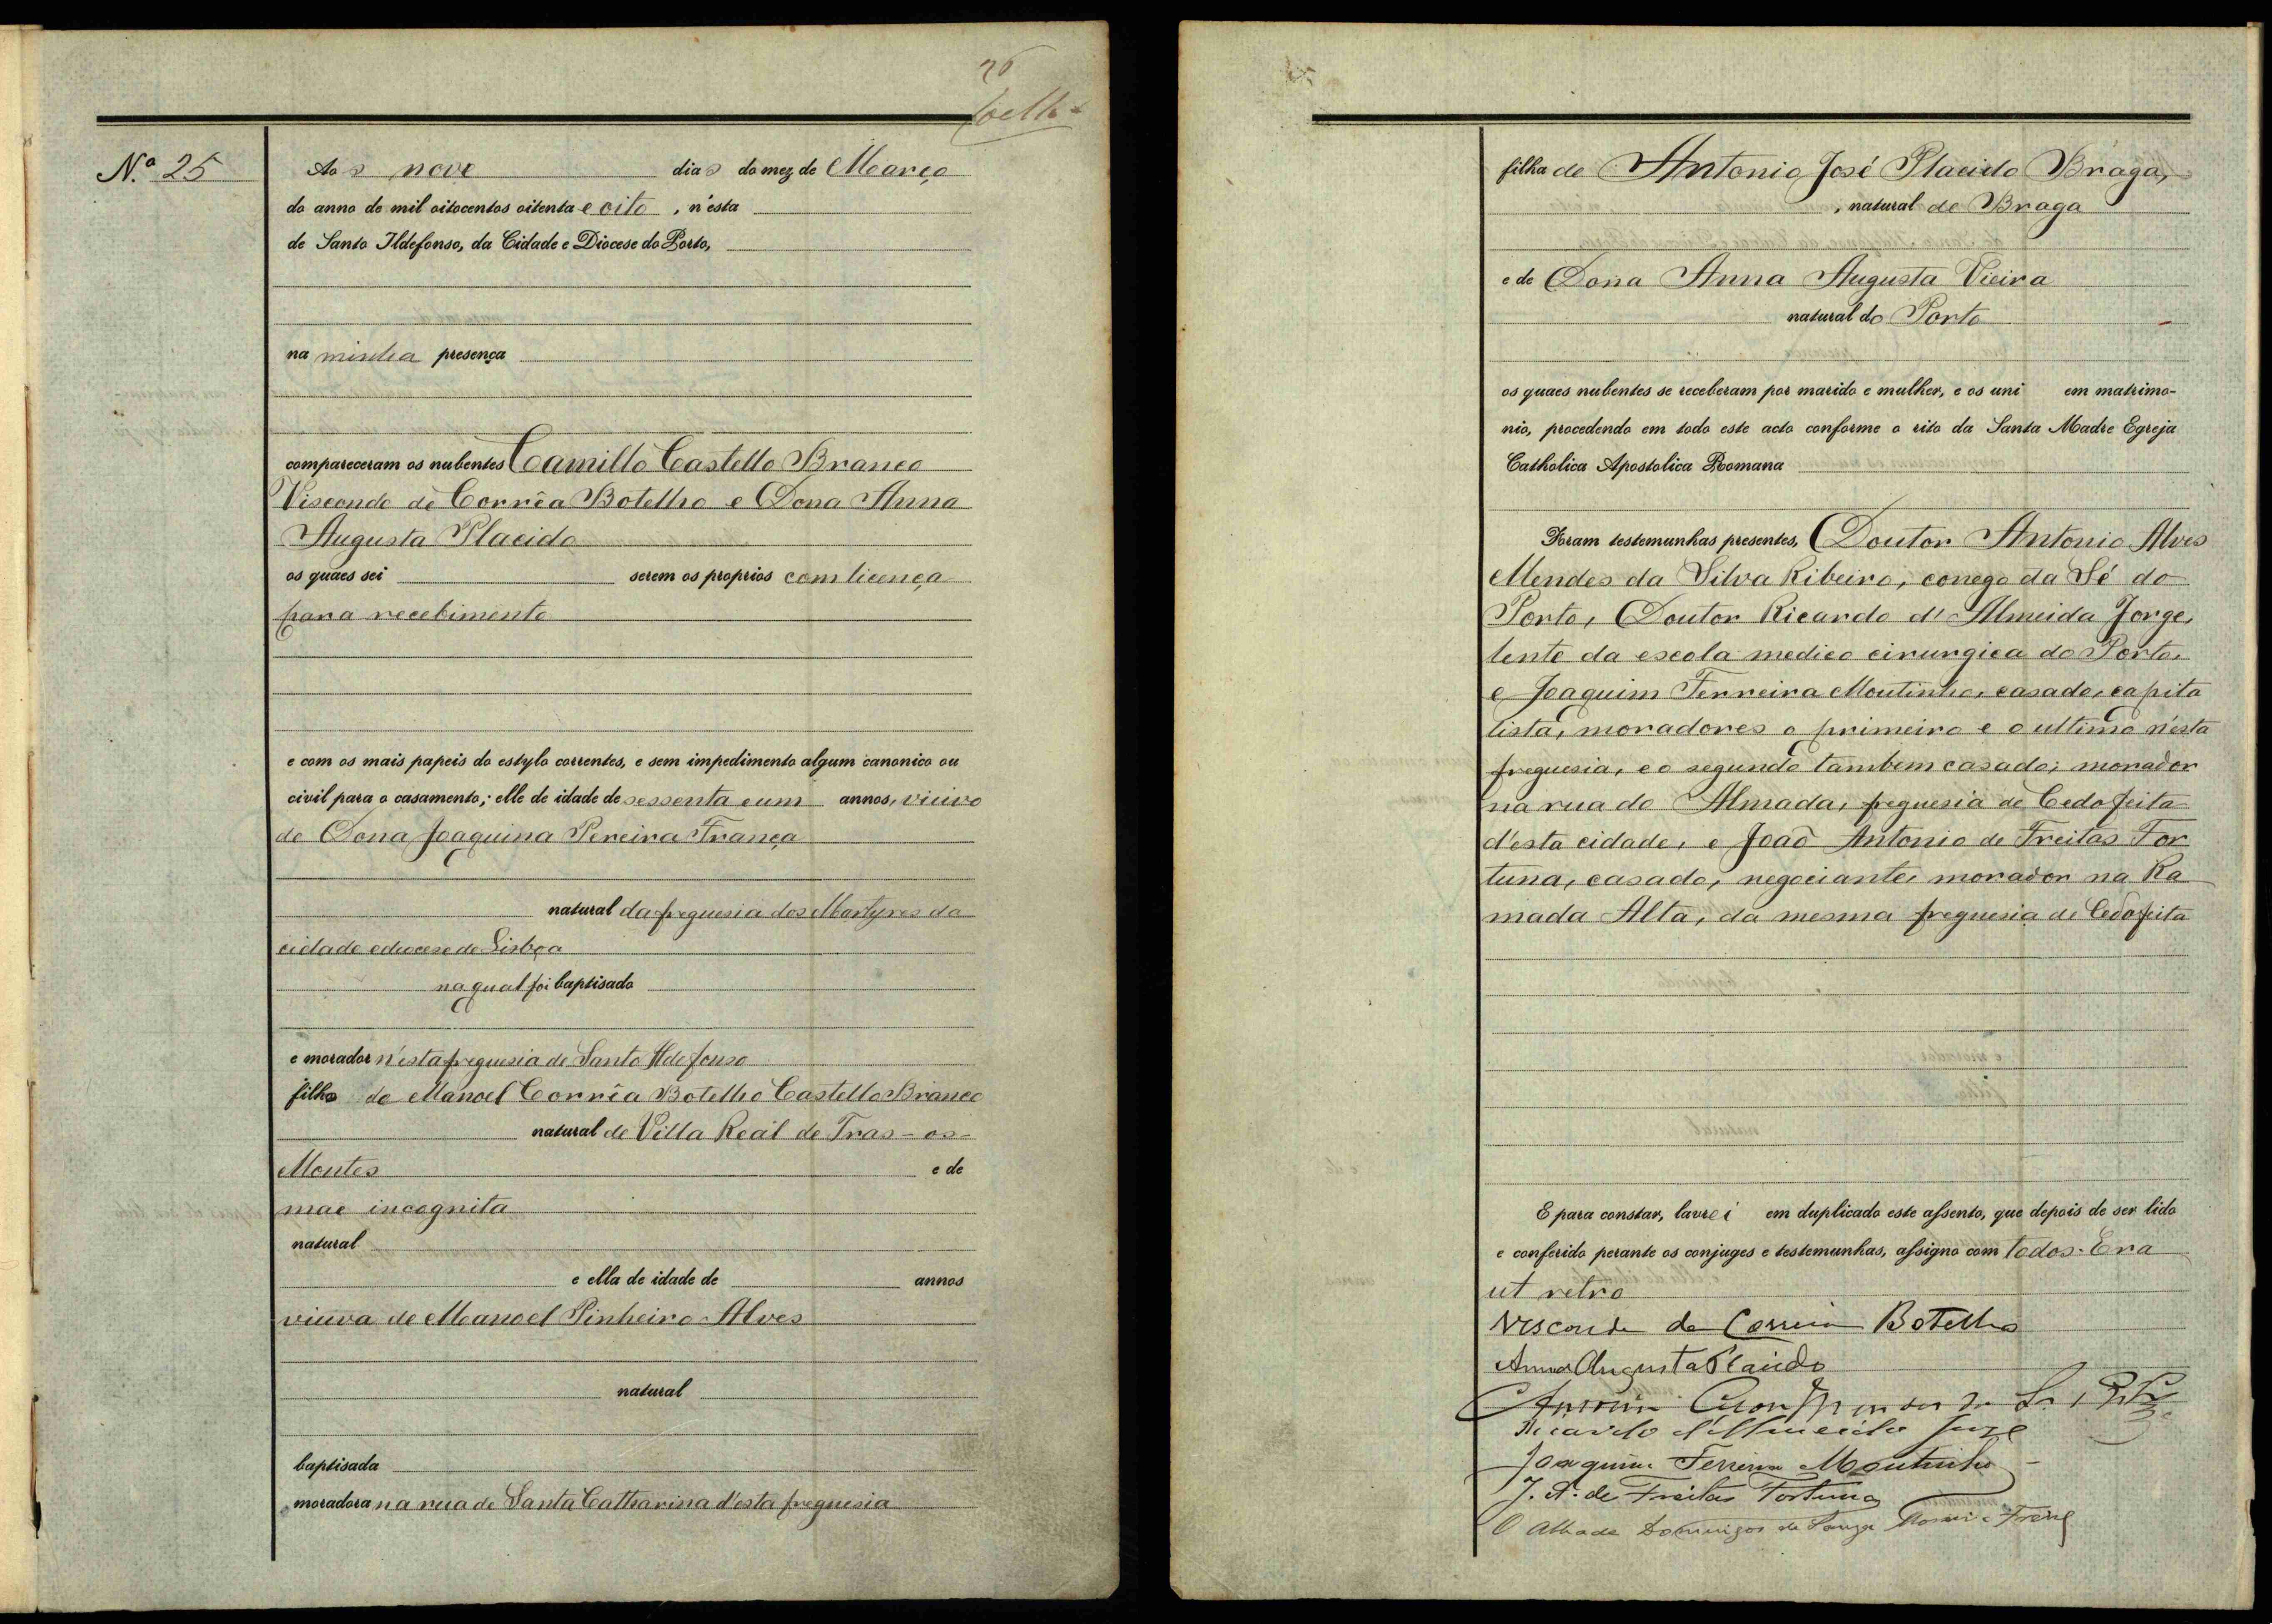 26
Coelho
N.º 25
Aos nove dias do mez de Março
do anno de mil oitocentos oitenta e oito, n'esta
de Santo Ildefonso, da Cidade e Diocese do Porto,
na minha presença
compareceram os nubentes Camillo Castello Branco
Visconde de Corrêa Botelho e Dona Anna
Augusta Placido
os quaes sei serem os proprios com licença
para recebimento
e com os mais papeis do estylo correntes, e sem impedimento algum canonico ou
civil para o casamento; elle de idade de sessenta e um annos, viuvo
de Dona Joaquina Pereira França
natural da freguesia dos Martyres da
cidade e diocese de Lisboa
na qual foi baptisado
e morador n'esta freguesia de Santo Ildefonso
filho de Manoel Corrêa Botelho Castello Branco
natural de Villa Real de Tras-os-
Montes e de
mae incognita
natural
e ella de idade de annos
viuva de Manoel Pinheiro Alves
natural
baptisada
moradora na rua de Santa Catharina d'esta freguesia
filha de Antonio José Placido Braga,
, natural de Braga
e de Dona Anna Augusta Vieira
natural do Porto
os quaes nubentes se receberam por marido e mulher, e os uni em matrimo-
nio, procedendo em todo este acto conforme o rito da Santa Madre Egreja
Catholica Apostolica Romana
Foram testemunhas presentes, Doutor Antonio Alves
Mendes da Silva Ribeiro, conego da Sé do
Porto, Doutor Ricardo d'Almeida Jorge,
lente da escola medico cirurgica do Porto,
e Joaquim Ferreira Moutinho, casado, capita
lista, moradores o primeiro e o ultimo n'esta
freguesia, e o segundo tambem casado; morador
na rua do Almada, freguesia de Cedofeita
d'esta cidade, e João Antonio de Freitas For
tuna, casado, negociante, morador na Ra
mada Alta, da mesma freguesia de Cedofeita
E para constar, lavrei em duplicado este assento, que depois de ser lido
e conferido perante os conjuges e testemunhas, assigno com todos. Era
ut retro
Visconde de Correia Botelho
Anna Augusta Placido
Antonio Alves Mendes da
Ricardo d'Almeida Jorge
Joaquim Ferreira Moutinho
J. A. de Freitas Fortuna
O Abbade Domingos de Souza Moreira Freire